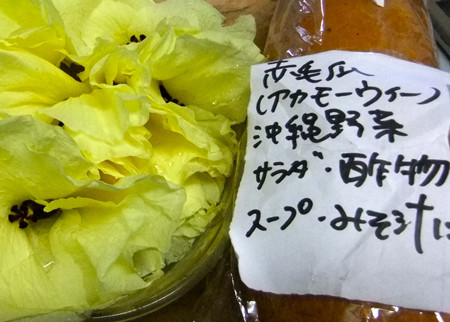 赤毛瓜
(アカモーウィー)
沖縄野菜
サラダ・酢物
スープ・みそ汁に